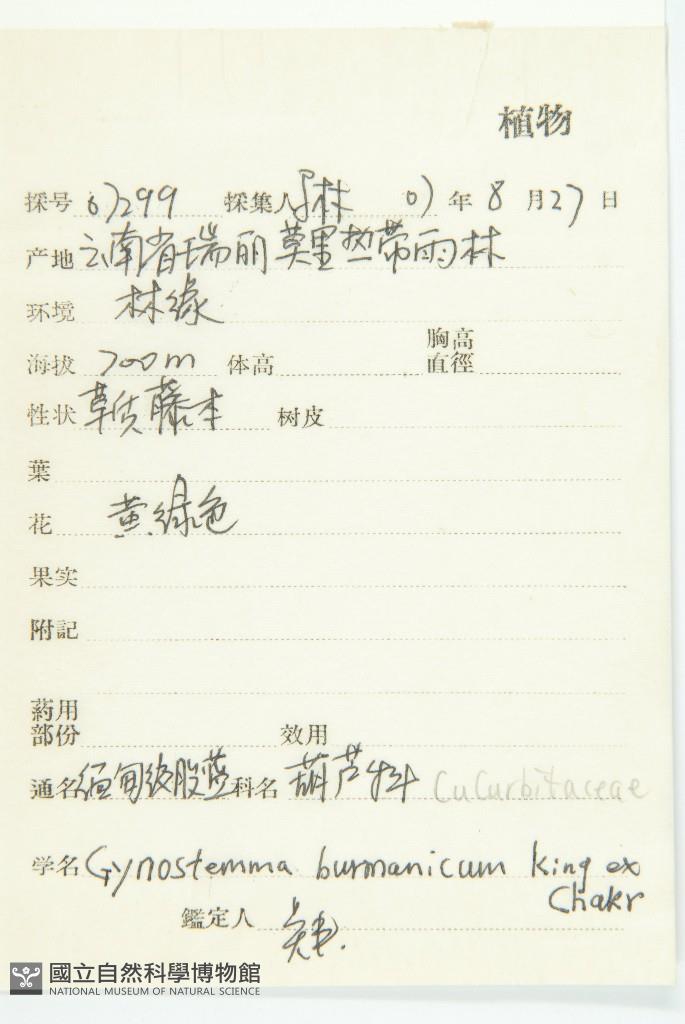 植物
採号 07299 採集人 林 07 年 8 月 27 日
产地 云南省瑞丽莫里热带雨林
环境 林缘
海拔 700m 体高 胸高直徑
性状 草质藤本 树皮
葉
花 黄绿色
果实
附記
葯用部份 效用
通名 缅甸绞股蓝 科名 葫芦科 Cucurbitaceae
学名 Gynostemma burmanicum King ex
Chakr
鑑定人
國立自然科學博物館
NATIONAL MUSEUM OF NATURAL SCIENCE